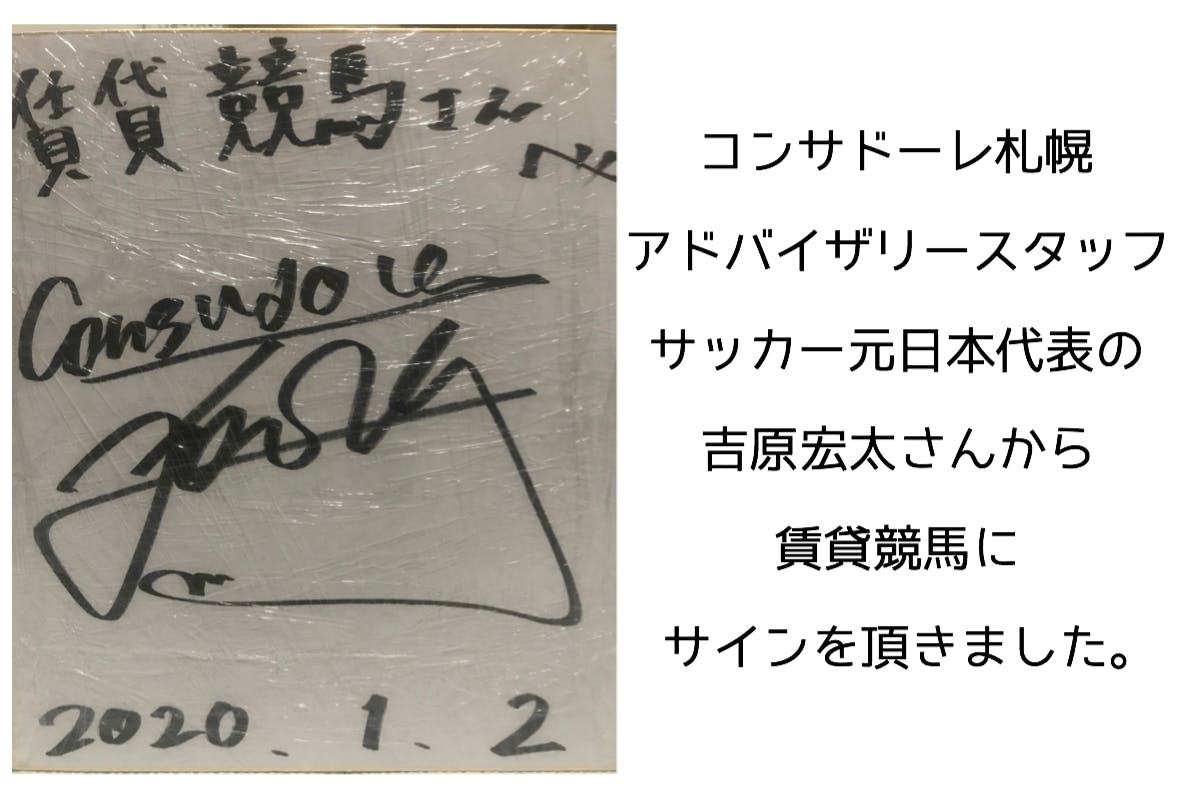 賃貸競馬さん
江
Consadole
2020.1.2
コンサドーレ札幌
アドバイザリースタッフ
サッカー元日本代表の
吉原宏太さんから
賃貸競馬に
サインを頂きました。